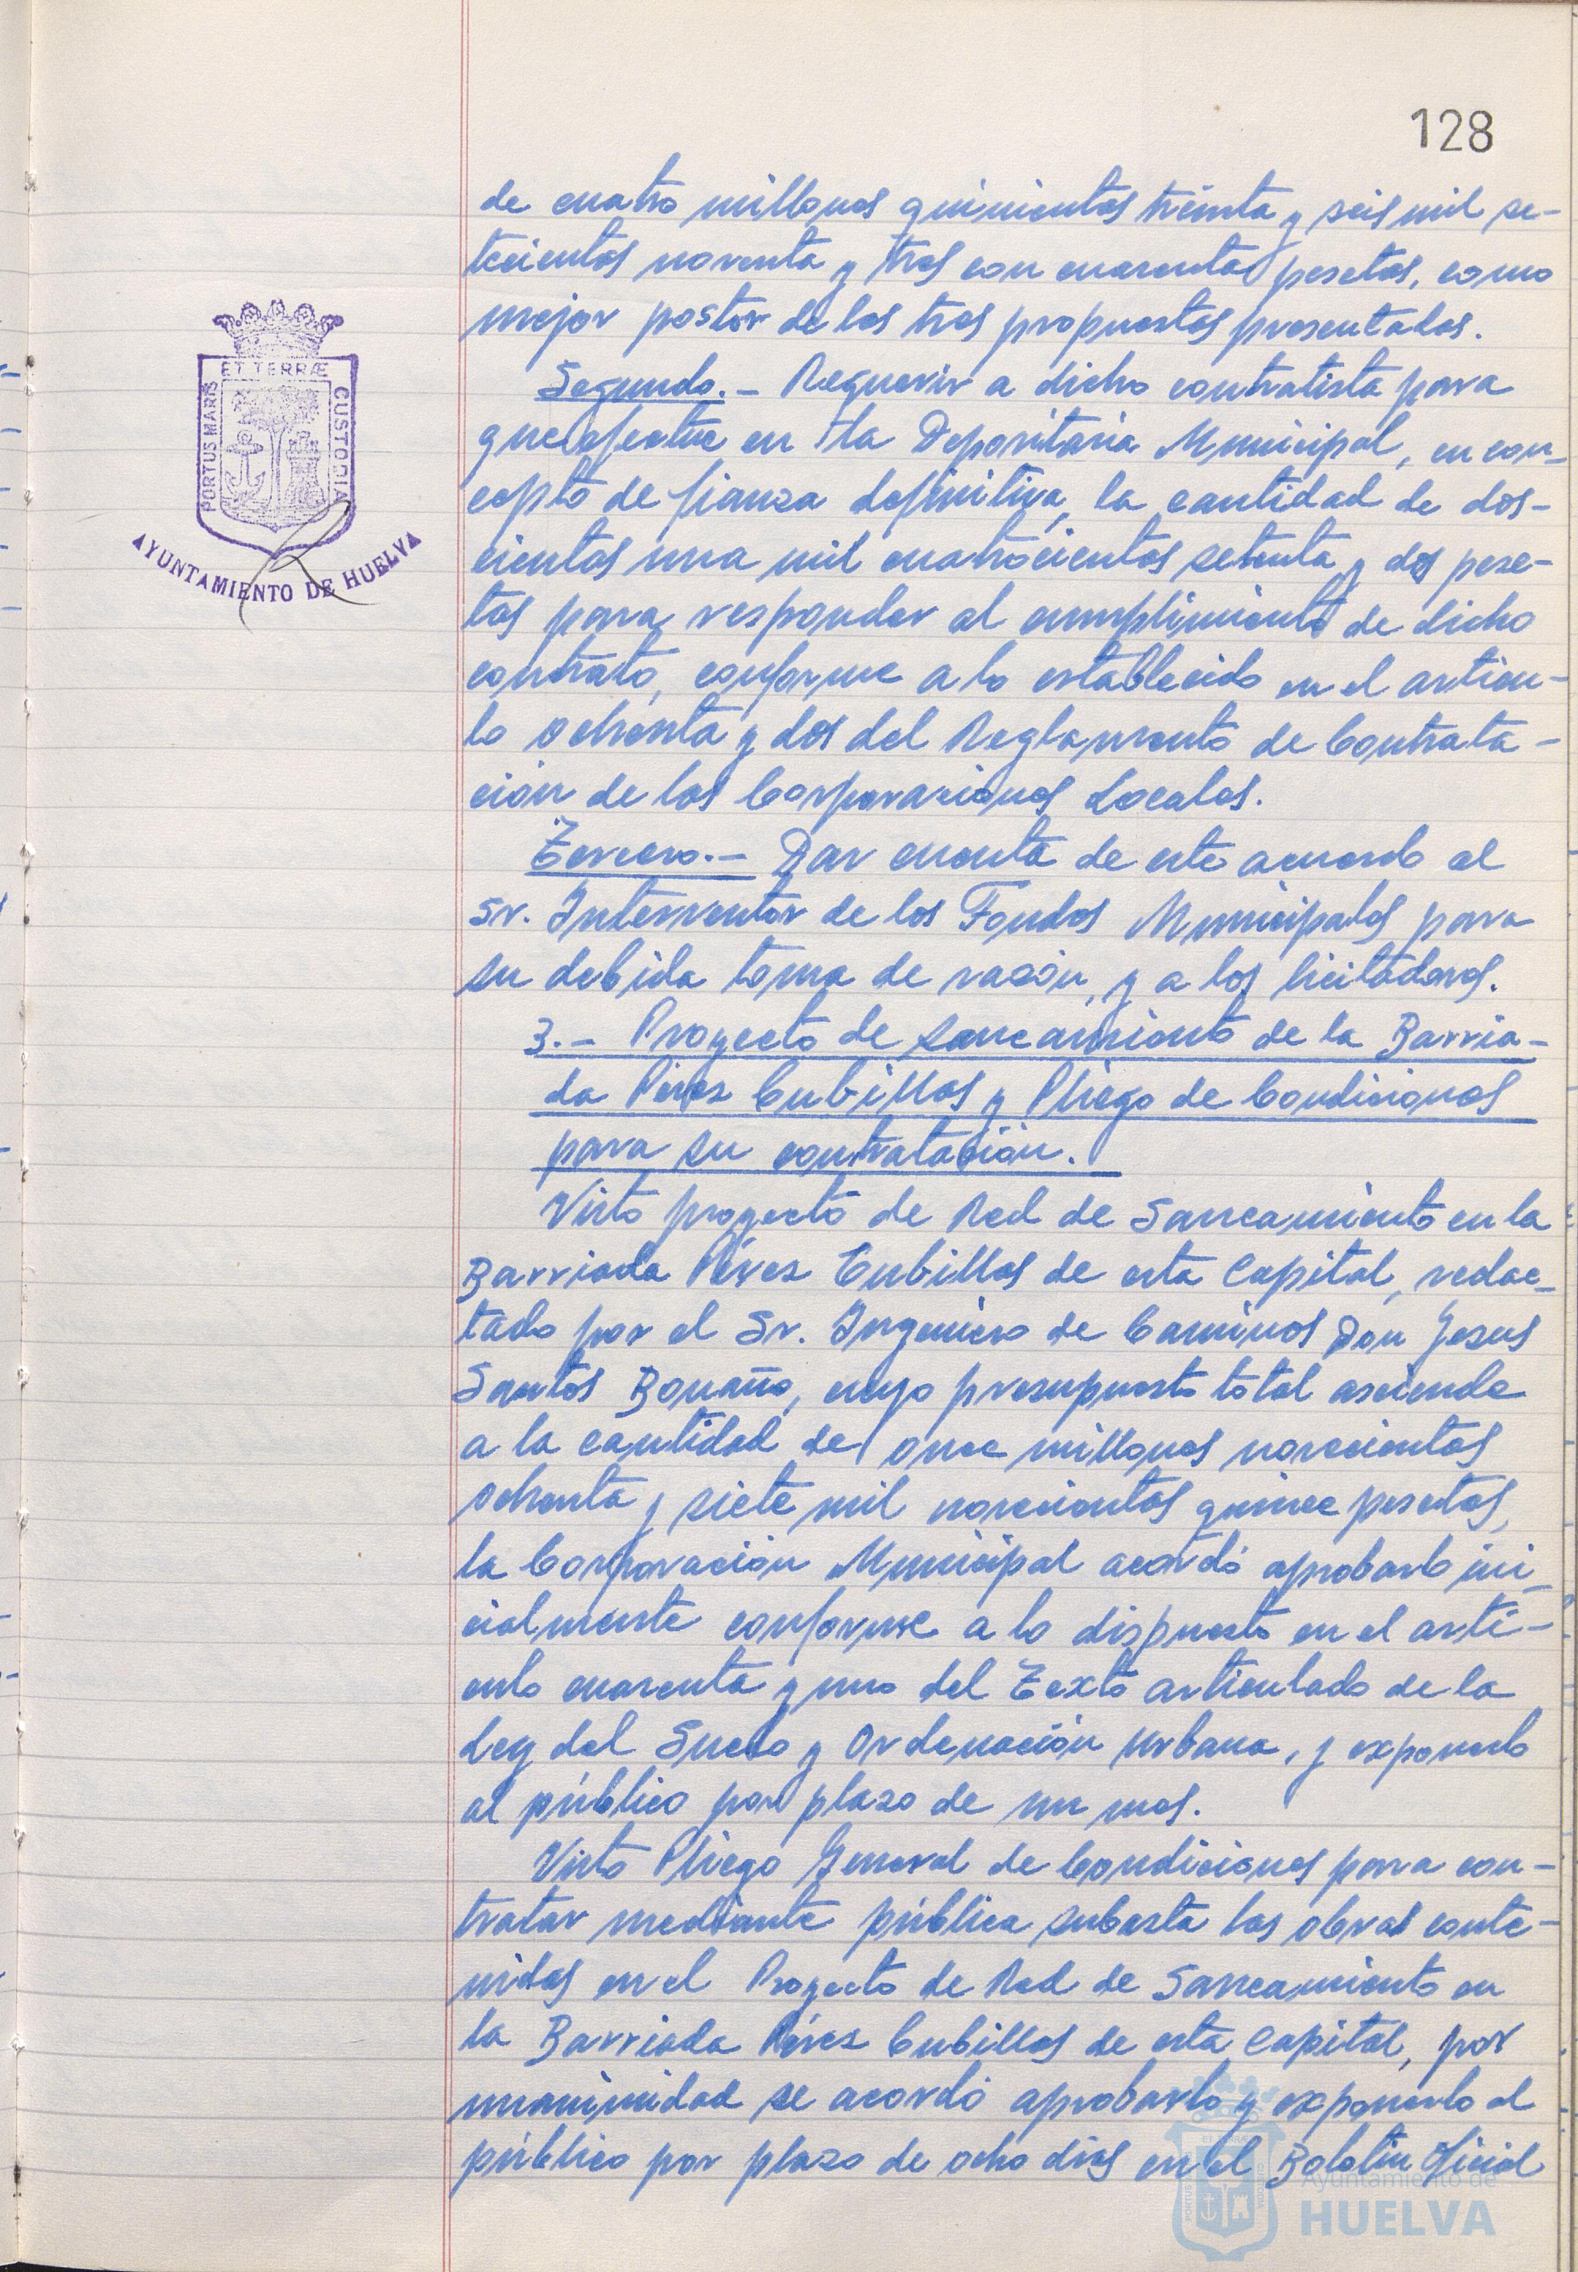 128
de cuatro millones quinientas treinta y seis mil se-
tecientas noventa y tres con cuarenta pesetas, como
mejor postor de las tres propuestas presentadas.
Segundo.- Requerir a dicho contratista para
que efectúe en la Depositaria Municipal, en con-
cepto de fianza definitiva, la cantidad de dos-
cientas una mil cuatrocientas setenta y dos pese-
tas para responder al cumplimiento de dicho
contrato, conforme a lo establecido en el artícu-
lo ochenta y dos del Reglamento de Contrata-
ción de las Corporaciones Locales.
Tercero.- Dar cuenta de este acuerdo al
Sr. Interventor de los Fondos Municipales para
su debida toma de razón, y a los licitadores.
3.- Proyecto de saneamiento de la Barria-
da Pérez Cubillas y Pliego de Condiciones
para su contratación.
Visto proyecto de Red de Saneamiento en la
Barriada Pérez Cubillas de esta Capital, redac-
tado por el Sr. Ingeniero de Caminos Don Jesus
Santos Bonaño, cuyo presupuesto total asciende
a la cantidad de once millones novecientas
ochenta y siete mil novecientas quince pesetas,
la Corporación Municipal acordó aprobarlo ini-
cialmente conforme a lo dispuesto en el artí-
culo cuarenta y uno del Texto articulado de la
Ley del Suelo y Ordenación Urbana, y exponerlo
al público por plazo de un mes.
Visto Pliego General de Condiciones para con-
tratar mediante pública subasta las obras conte-
nidas en el Proyecto de Red de Saneamiento en
la Barriada Pérez Cubillas de esta Capital, por
unanimidad se acordó aprobarlo y exponerlo al
público por plazo de ocho días en el Boletín Oficial
PORTUS MARIS ET TERRÆ CUSTODIA
AYUNTAMIENTO DE HUELVA
Ayuntamiento de
HUELVA